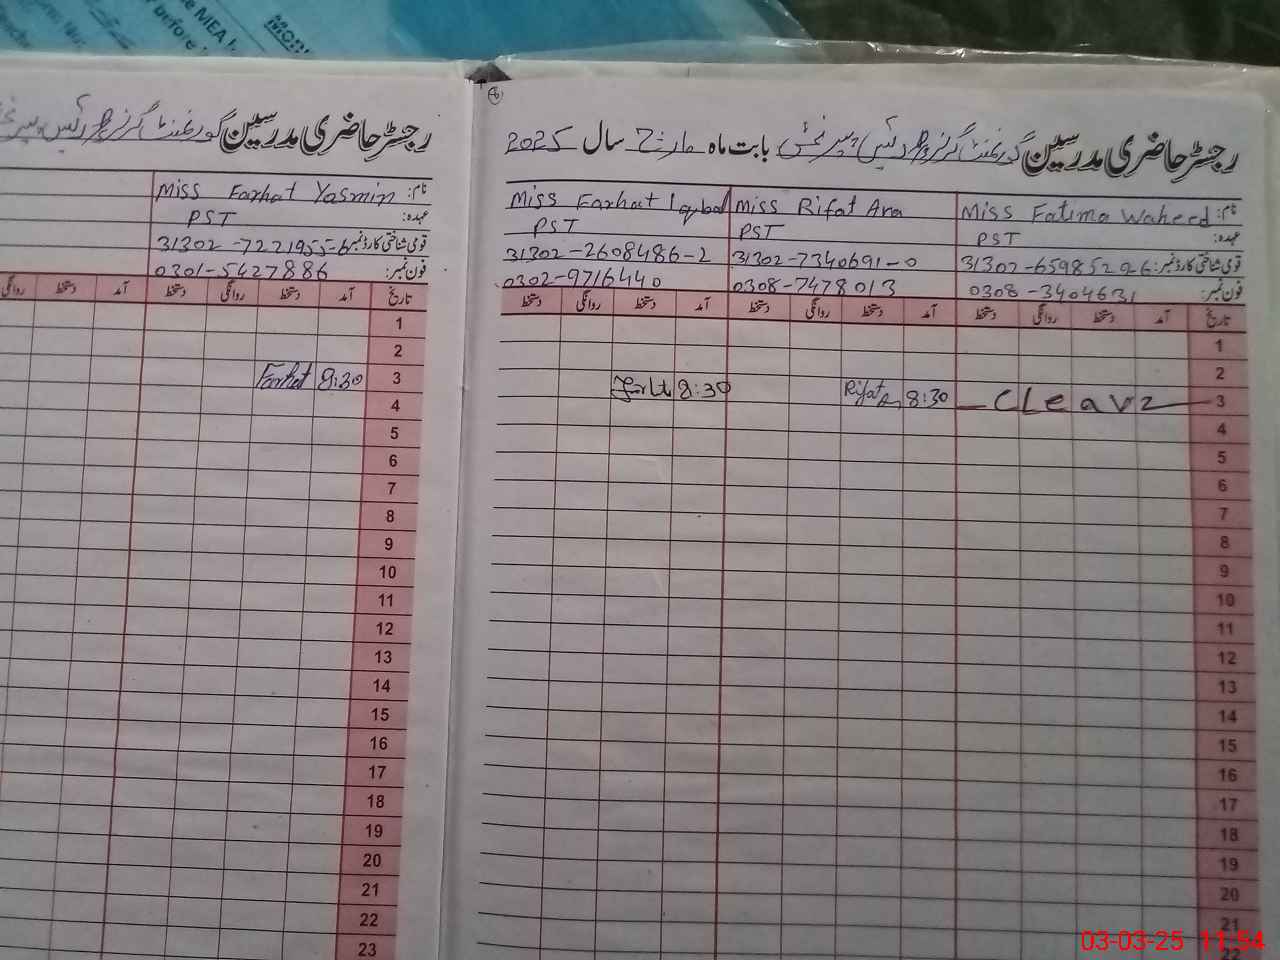 MEA
before
رجسٹر حاضری مدرسین گورنمنٹ گرلز
نام: Miss Farhat Yasmin
عہدہ: PST
قومی شناختی کارڈ نمبر 31302-7221955-6
فون نمبر: 0301-5427886
تاریخ آمد دستخط روانگی دستخط آمد دستخط روانگی
1
2
3 8:30 Farhat
4
5
6
7
8
9
10
11
12
13
14
15
16
17
18
19
20
21
22
23
رجسٹر حاضری مدرسین گورنمنٹ گرلز بابت ماہ مارچ سال 2025
نام: Miss Fatima Waheed Miss Rifat Ara Miss Farhat Iqbal
عہدہ: PST PST PST
قومی شناختی کارڈ نمبر: 31302-6598529-6 31302-7340691-0 31302-2608486-2
فون نمبر: 0308-3404631 0308-7478013 0302-9716440
تاریخ آمد دستخط روانگی دستخط آمد دستخط روانگی دستخط آمد دستخط روانگی دستخط
1
2
3 CLeave 8:30 Rifat 8:30
4
5
6
7
8
9
10
11
12
13
14
15
16
17
18
19
20
21
22
03-03-25 11:54